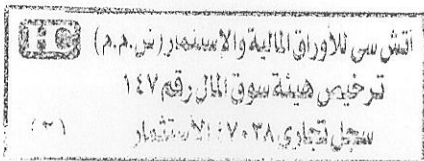 اتش سى للاوراق المالية والاستثمار (ش.م.م) HC
ترخيص هيئة سوق المال رقم ١٤٧
سجل تجارى ٧٠٢٨ الاستثمار (٣)